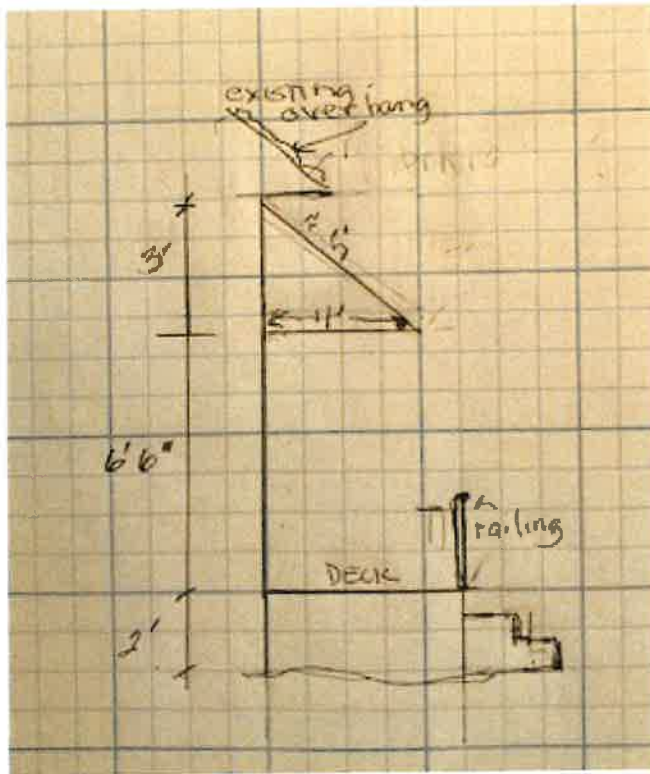 existing
overhang
3'
≈ 5'
4'
6' 6"
railing
DECK
2'